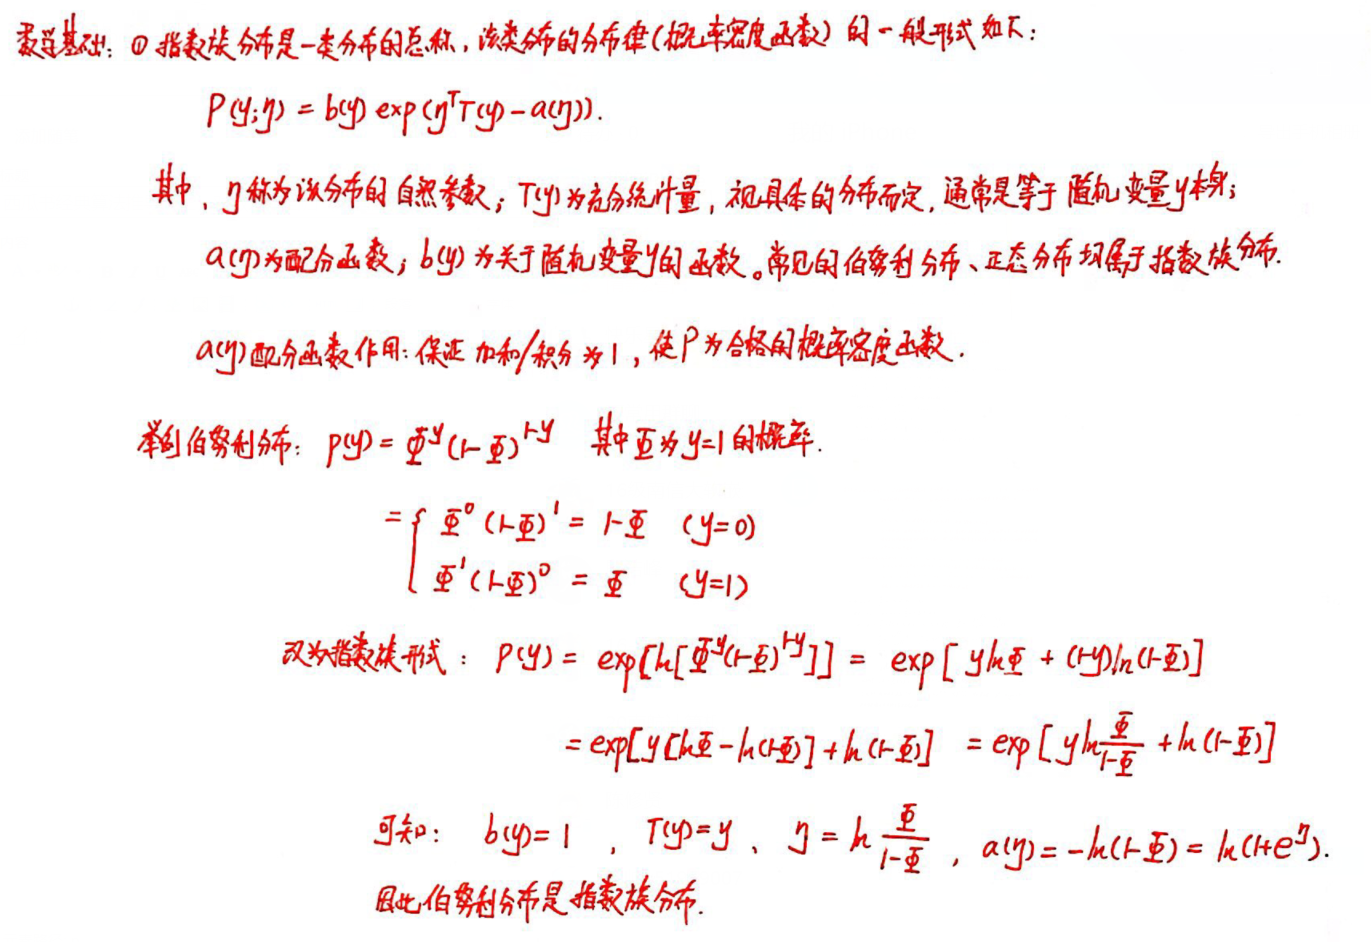 数学基础: ① 指数族分布是一类分布的总称, 该类分布的分布律(概率密度函数) 的一般形式如下:
P(y;η) = b(y) exp(η^T T(y) - a(η)).
其中, η称为该分布的自然参数; T(y)为充分统计量, 视具体的分布而定, 通常是等于随机变量y本身;
a(η)为配分函数; b(y)为关于随机变量y的函数。常见的伯努利分布、正态分布均属于指数族分布.
a(η)配分函数作用: 保证加和/积分为1, 使P为合格的概率密度函数.
举例伯努利分布: p(y) = Φ^y (1-Φ)^{1-y} 其中Φ为y=1的概率.
= { Φ^0 (1-Φ)^1 = 1-Φ (y=0)
Φ^1 (1-Φ)^0 = Φ (y=1)
改为指数族形式: P(y) = exp[ln[Φ^y(1-Φ)^{1-y}]] = exp[ylnΦ + (1-y)ln(1-Φ)]
= exp[y[lnΦ - ln(1-Φ)] + ln(1-Φ)] = exp[y ln Φ/(1-Φ) + ln(1-Φ)]
可知: b(y)=1 , T(y)=y 、 η = ln Φ/(1-Φ) , a(η) = -ln(1-Φ) = ln(1+e^η).
因此伯努利分布是指数族分布.